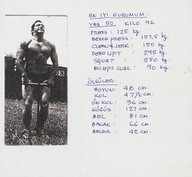 EN İYİ DURUMUM:
YAŞ 50. KİLO 96
PRESS: 125 kg
BENCH PRESS: 157,5 kg
CLEAN & JERK: 150 kg
DEAD LIFT : 295 kg
SQUAT : 250 kg
BICEPS CURL : 90 kg
ÖLÇÜLER:
BOYUN : 48 cm
KOL : 47½ cm
ÖN KOL : 36 cm
GÖĞÜS : 127 cm
BEL : 81 cm
BACAK : 66 cm
BALDIR : 42 cm